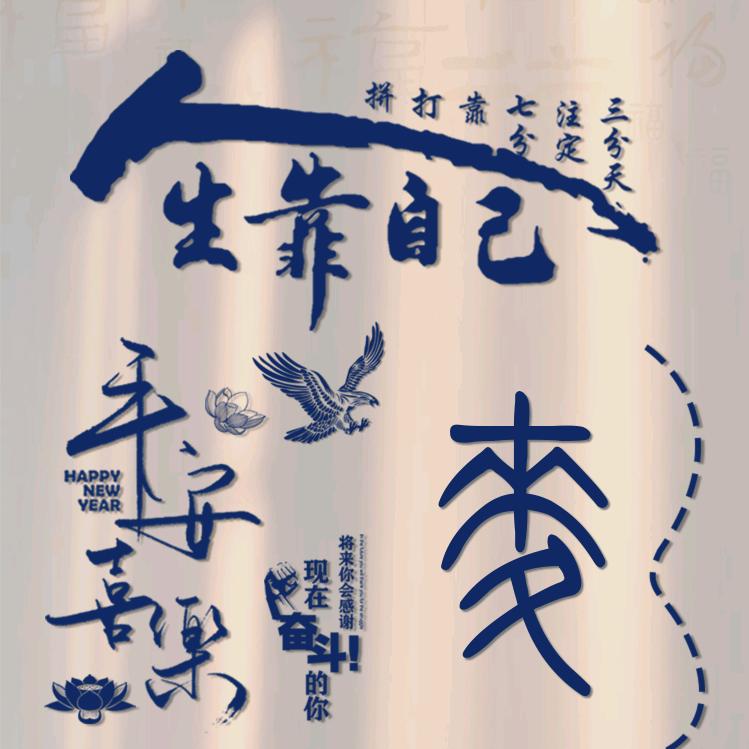 人生靠自己
三分天
注定
七分
靠
打
拼
平安
喜樂
HAPPY
NEW
YEAR
将来你会感谢
现在
奋斗!
的你
麥
福
福
福